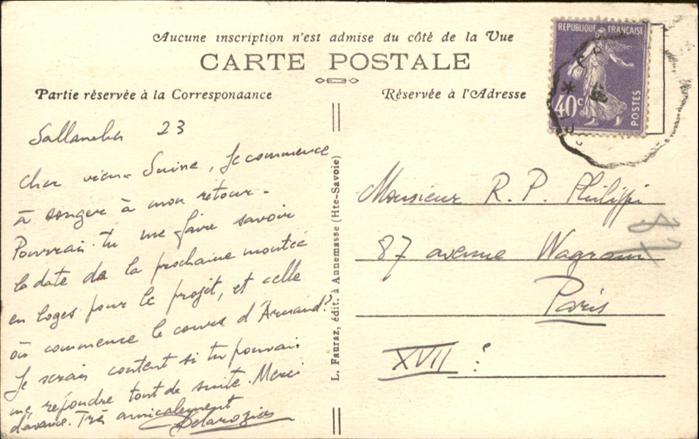 Aucune inscription n'est admise du côté de la Vue
CARTE POSTALE
Partie réservée à la Correspondance
Réservée à l'Adresse
REPUBLIQUE FRANÇAISE
40c
POSTES
Sallanches 23
Cher vieux Je commence
à songer à mon retour.
Pourrais-tu me faire savoir
la date de la prochaine montée
en loges pour le projet, et celle
où commence le cours d'Armand?
Je serais content si tu pouvais
me répondre tout de suite. Merci
d'avance. Très amicalement
L. Fauraz, édit. à Annemasse (Hte-Savoie)
Monsieur R. P. Philippi
87 avenue Wagram
Paris
XVII
87